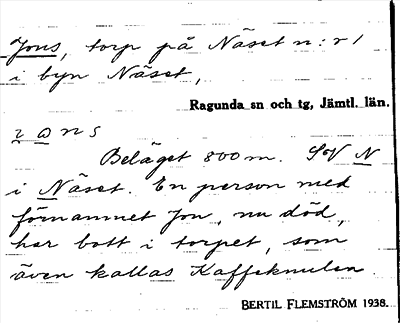 Jons, torp på Näset n:r 1
i byn Näset,
Ragunda sn och tg, Jämtl. län.
Beläget 800 m. SV N
i Näset. En person med
förnamnet Jon, nu död,
har bott i torpet, som
även kallas Kaffeknulen.
BERTIL FLEMSTRÖM 1938.